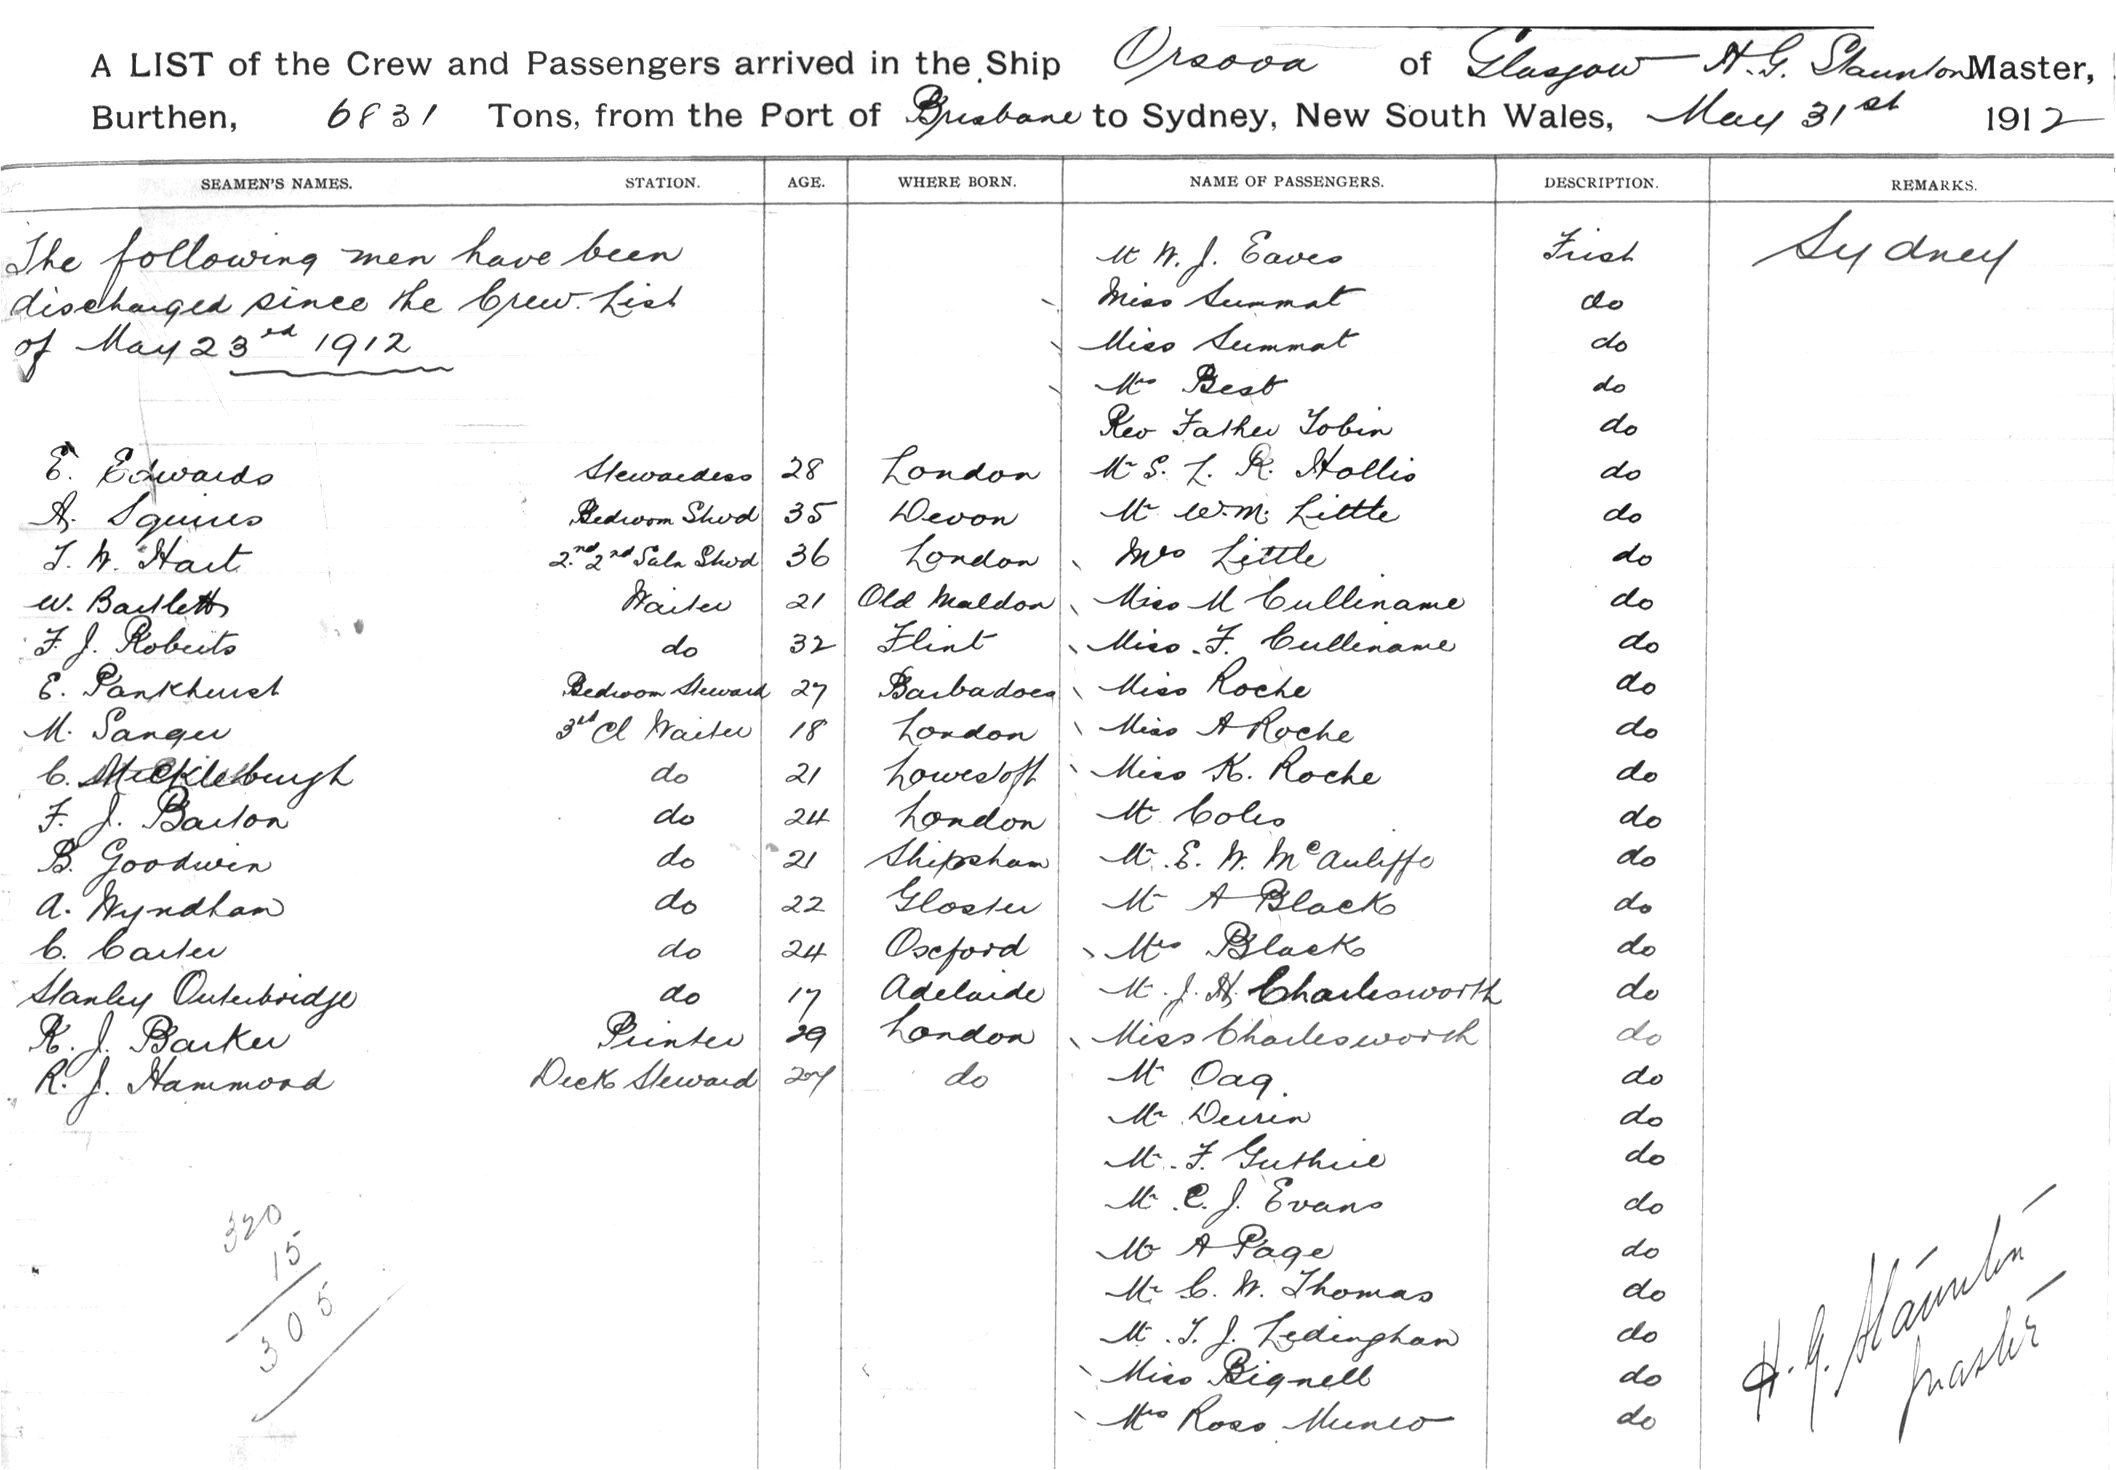 A LIST of the Crew and Passengers arrived in the Ship Orsova of Glasgow H. G. Staunton Master,
Burthen, 6831 Tons, from the Port of Brisbane to Sydney, New South Wales, May 31st 1912
SEAMEN'S NAMES. STATION. AGE. WHERE BORN. NAME OF PASSENGERS. DESCRIPTION. REMARKS.
The following men have been
discharged since the Crew List
of May 23rd 1912
Mr W. J. Eaves First Sydney
Miss Summat do
Miss Summat do
Mrs Best do
Rev Father Tobin do
E. Edwards Stewardess 28 London Mr S. L. R. Hollis do
A. Squires Bedroom Stwd 35 Devon Mr W. M. Little do
T. W. Hart 2nd 2nd Saln Stwd 36 London Mrs Little do
W. Bartlett Waiter 21 Old Maldon Miss M Culliname do
F. J. Roberts do 32 Flint Miss F. Culliname do
E. Pankhurst Bedroom Steward 27 Barbadoes Miss Roche do
M. Sanger 3rd Cl Waiter 18 London Miss A Roche do
C. Mickleburgh do 21 Lowestoft Miss K. Roche do
F. J. Barton do 24 London Mr Coles do
B. Goodwin do 21 Shipsham Mr E. W. McAuliffe do
A. Wyndham do 22 Gloster Mr A Black do
C. Carter do 24 Oxford Mrs Black do
Stanley Outerbridge do 17 Adelaide Mr J. H. Charlesworth do
R. J. Barker Printer 29 London Miss Charlesworth do
R. J. Hammond Deck Steward 27 do Mr Oag do
Mr do
Mr F. Guthrie do
Mr C. J. Evans do
Mr A Page do
Mr C. W. Thomas do
Mr T. J. Ledingham do
Miss Bignell do
Mrs Ross Munro do
320
15
305
H. G. Staunton
Master